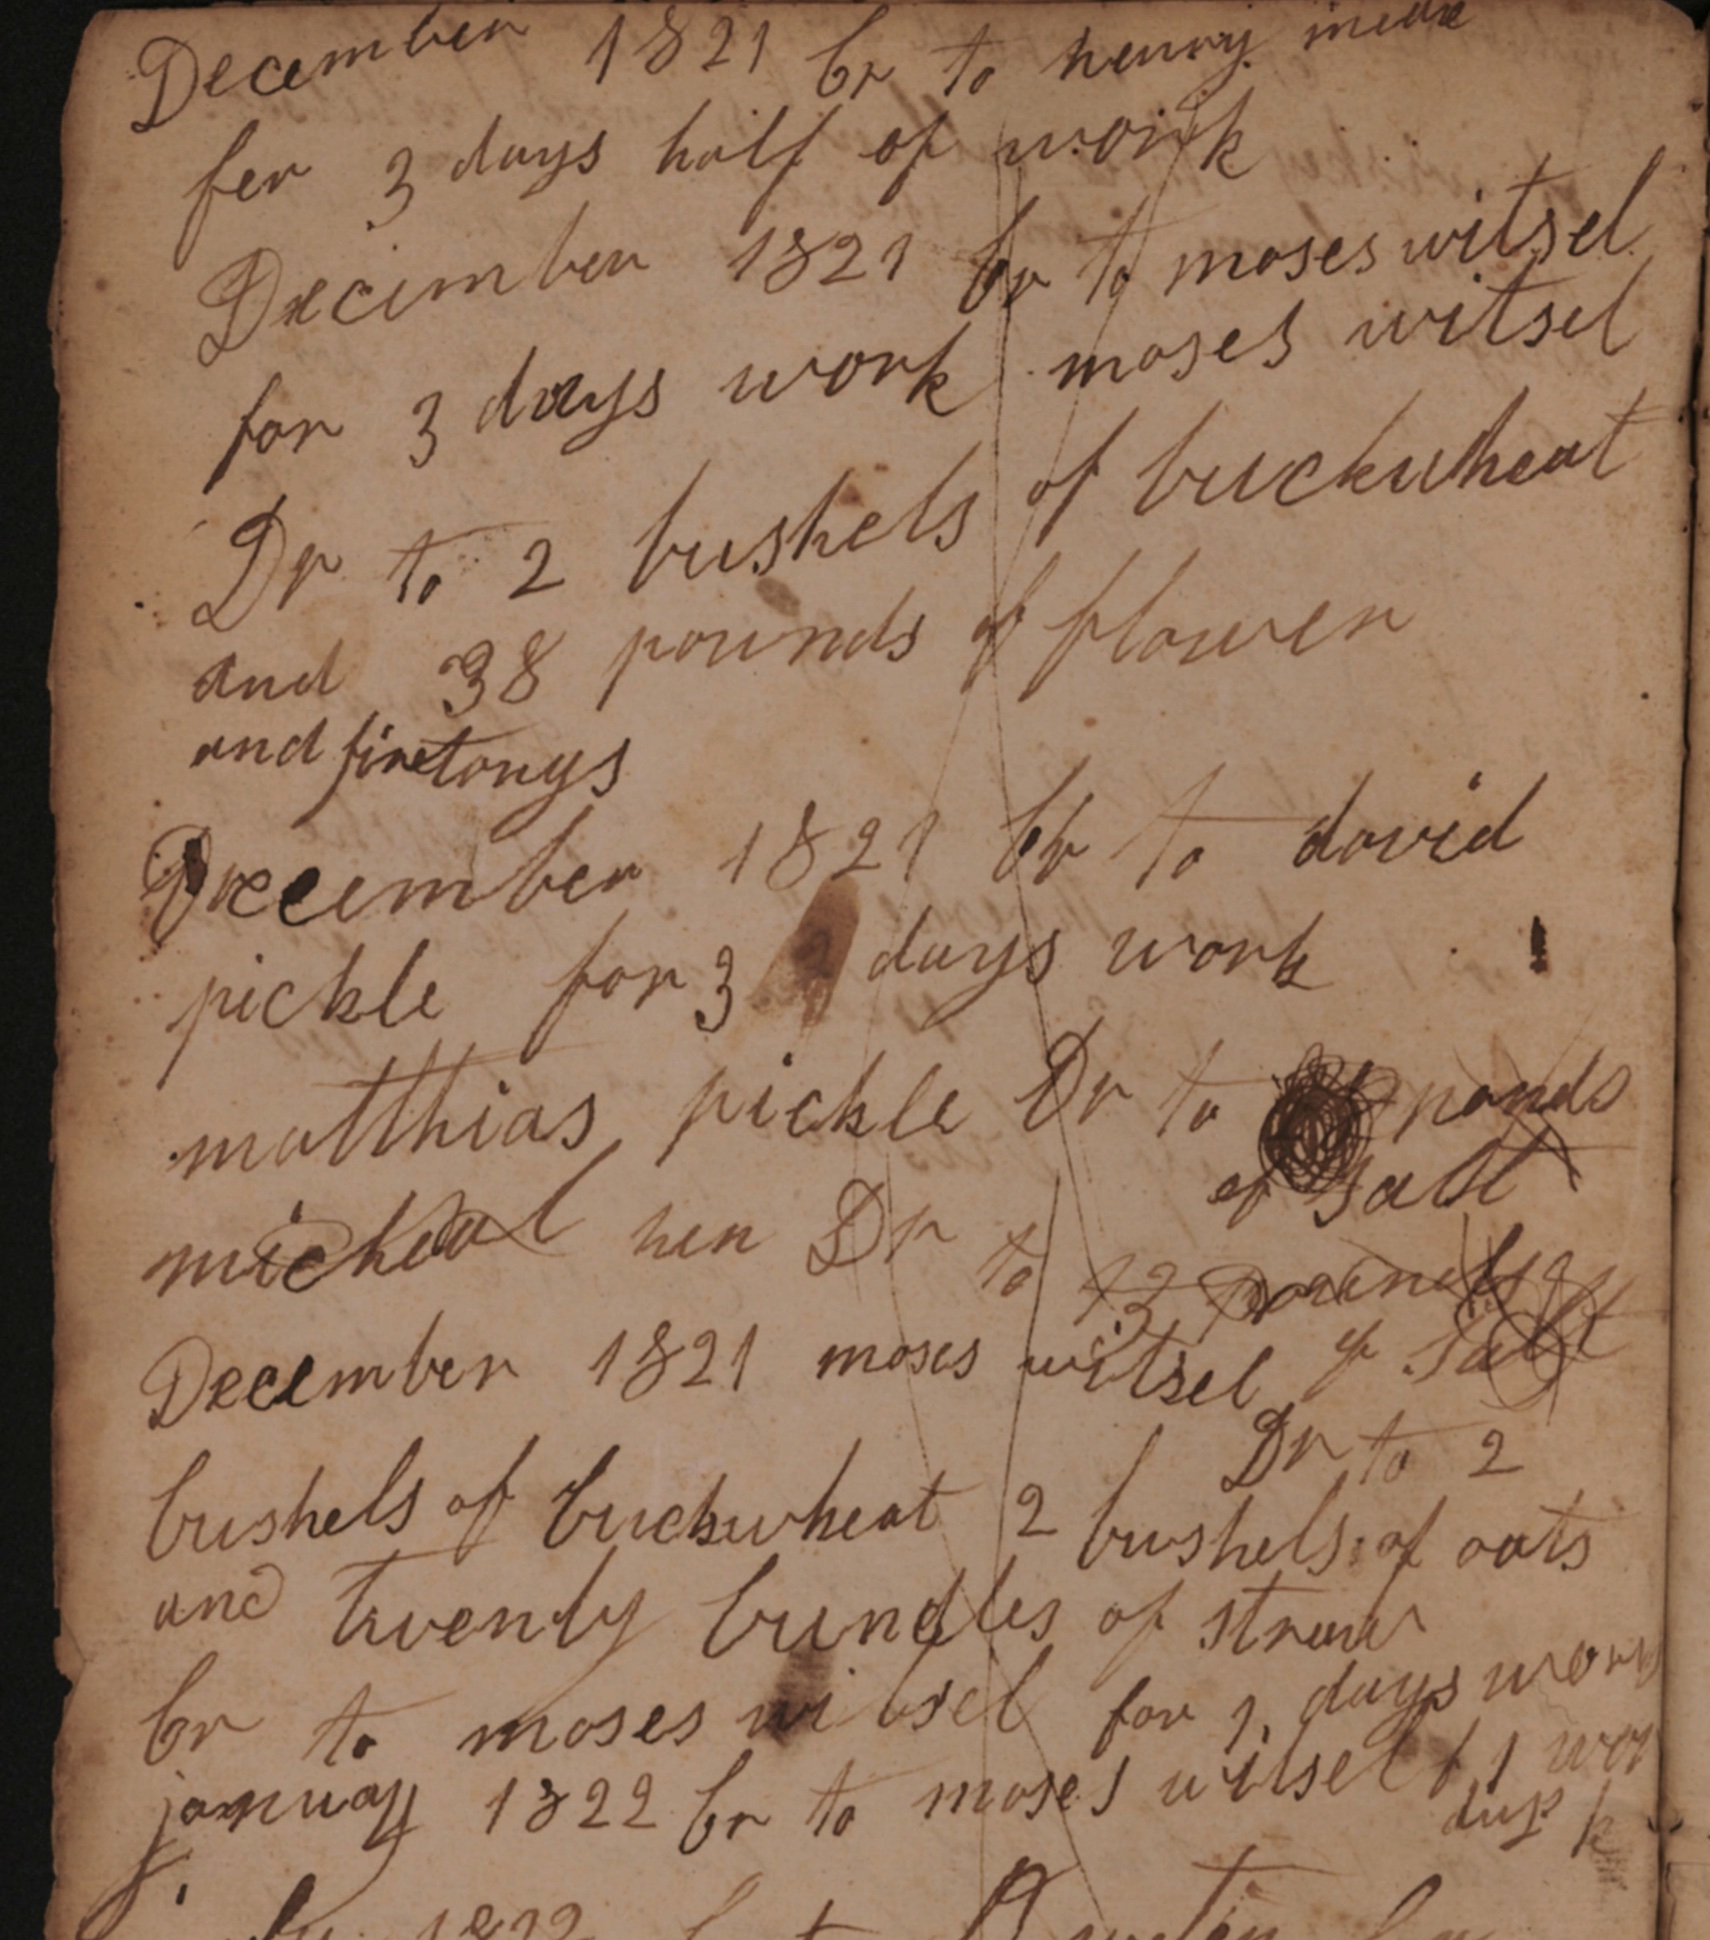 December 1821 Cr to henry
fer 3 days half of work
December 1821 Cr to moses witsel
for 3 days work moses witsel
Dr to 2 bushels of buckwheat
and 38 pounds of flower
and firetongs
December 1821 Cr to david
pickle for 3 days work
matthias pickle Dr to ponds
of salt
micheal hen Dr to 12 pounds
of salt
December 1821 moses witsel
Dr to 2
bushels of buckwheat 2 bushels of oats
and twenty bundles of straw
Cr to moses witsel for 1 days work
january 1822 Cr to moses witsel f 1 wor
day k
1822